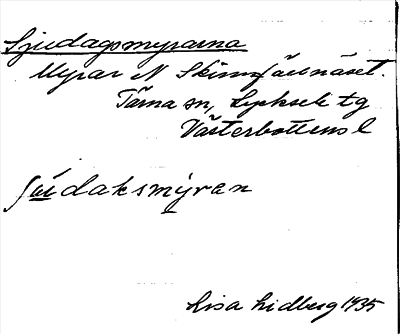 Sjudagsmyrarna
Myrar N Skinnfällnäset.
Tärna sn, Lycksele tg
Västerbottens l
ʃúdaksmýran
Lisa Lidberg 1935